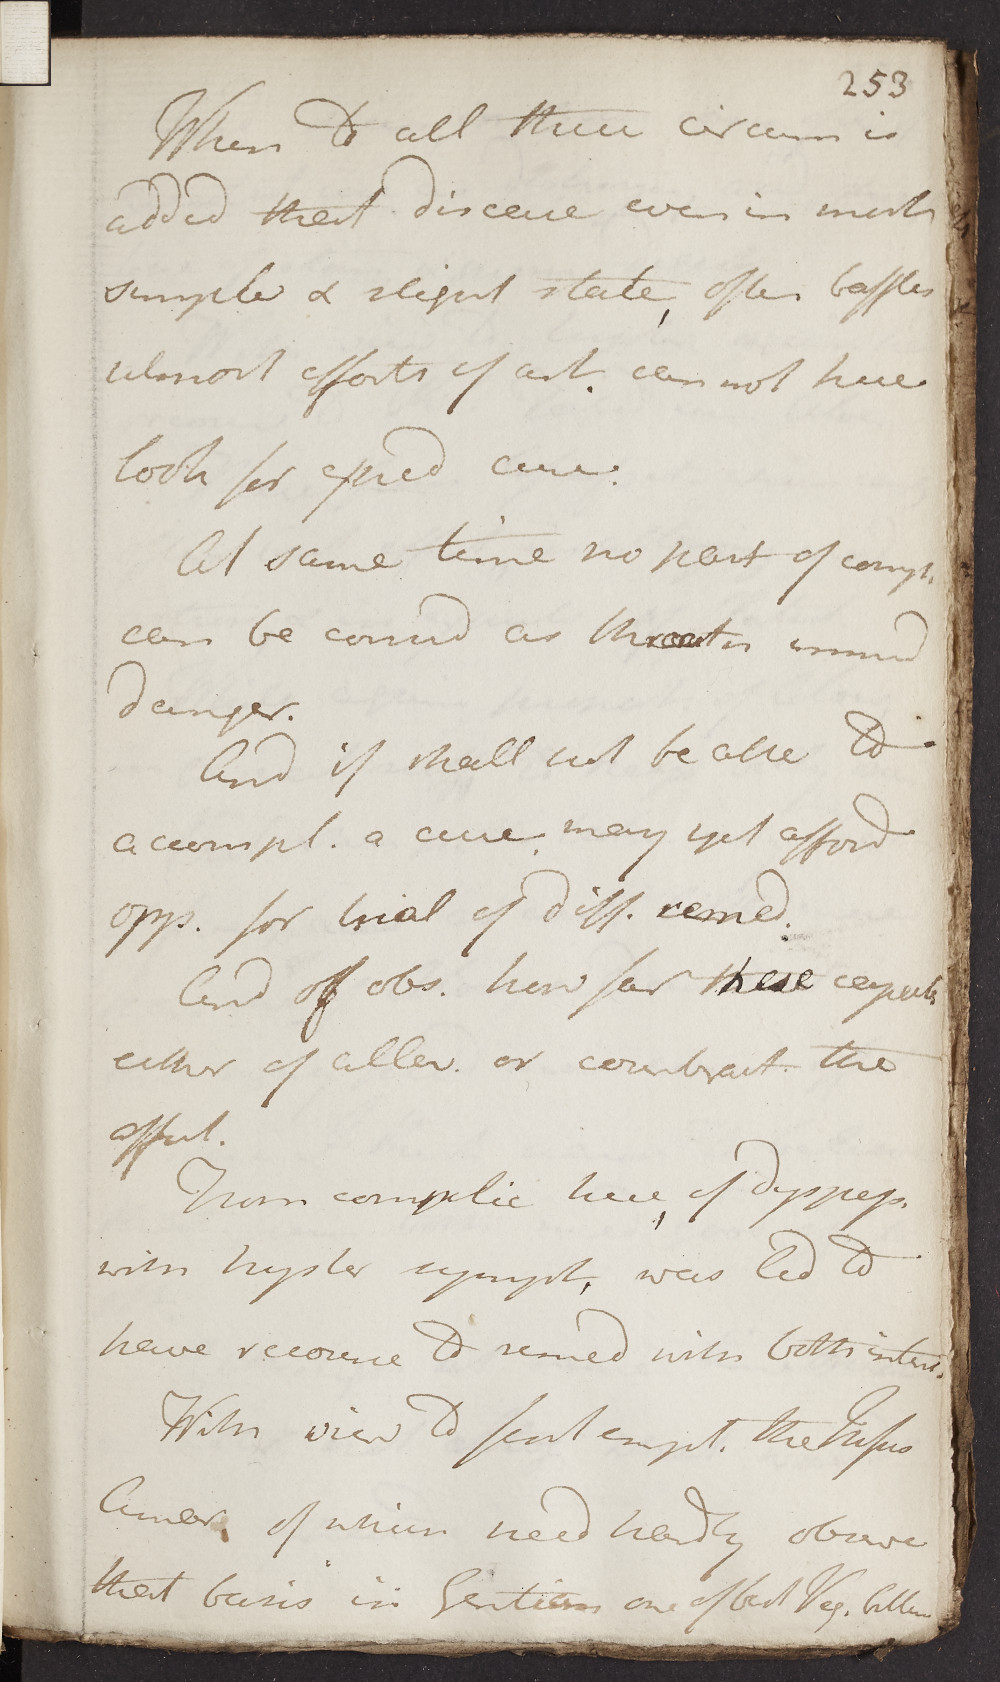 253
When to all these circum is
added that disease even in most
simple & slight state, often baffles
utmost efforts of art. can not here
look for speed cure.
At same time no part of compl.
can be consid as threatn immed
danger.
And if shall not be able to
accompl. a cure, may yet afford
opp. for trial of diff. remed.
And of obs. how far these capable
either of allev. or counteract. the
affect.
From complic here, of dyspeps.
with hyster sympt, was led to
have recourse to remed with both intent.
With view to first empl. the Infus
Amar. of which need hardly observe
that basis is Gentian one of best Veg. bitters